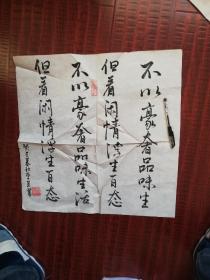 不以豪奢品味生
但着闲情浮生百态
不以豪奢品味生活
但着闲情浮生百态